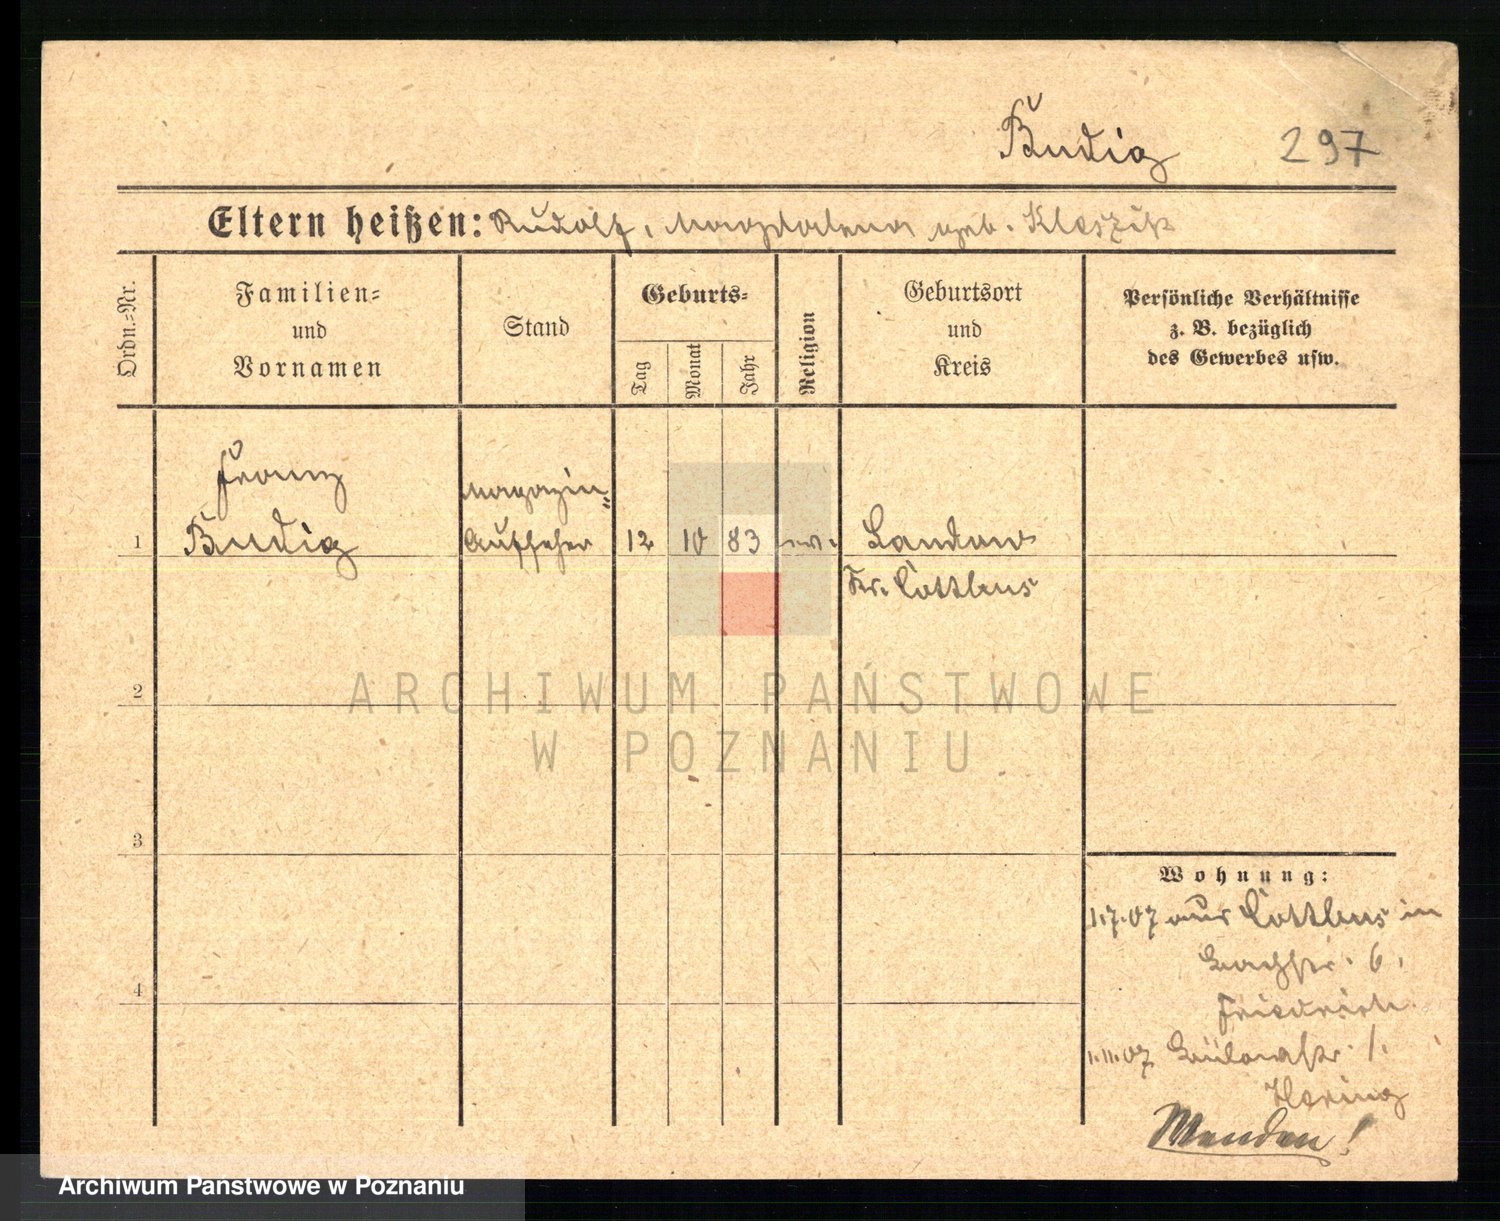 Budig 297
Eltern heißen: Rudolf, Magdalena geb.
Ordn.=Nr.
Familien=
und
Vornamen
Stand
Geburts=
Tag
Monat
Jahr
Religion
Geburtsort
und
Kreis
Persönliche Verhältnisse
z. B. bezüglich
des Gewerbes usw.
Franz
Budig
Magazin=
Aufseher
1 12 10 83 ev. Landau
Kr. Cottbus
2
ARCHIWUM PAŃSTWOWE
W POZNANIU
3
Wohnung:
1.7.07 aus Cottbus in
Bachstr. 6.
Friedrich
4
1.11.07 Bülowstr. 1.
Hering
Archiwum Państwowe w Poznaniu